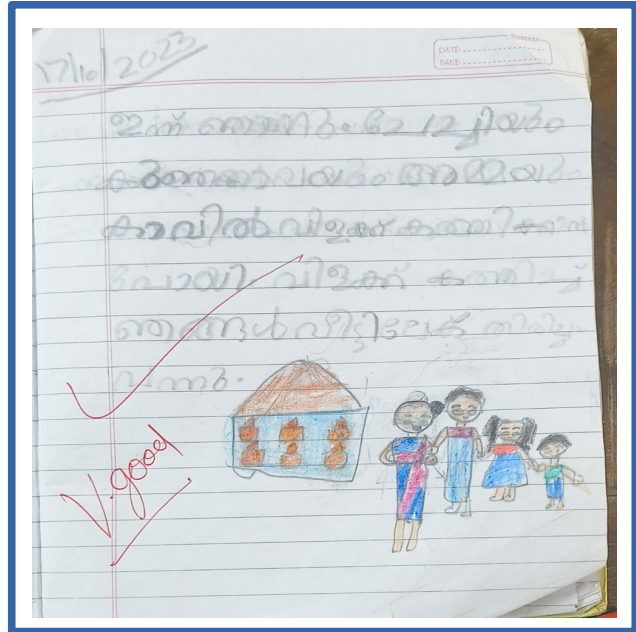 17/10/2023
DATE
PAGE
ഇന്ന് ഞാനും ചേച്ചിയും
കുഞ്ഞാവയും അമ്മയും
കാവിൽ വിളക്ക് കത്തിക്കാൻ
പോയി വിളക്ക് കത്തിച്ച്
ഞങ്ങൾ വീട്ടിലേക് തിരിച്ചു
വന്നു.
V.good